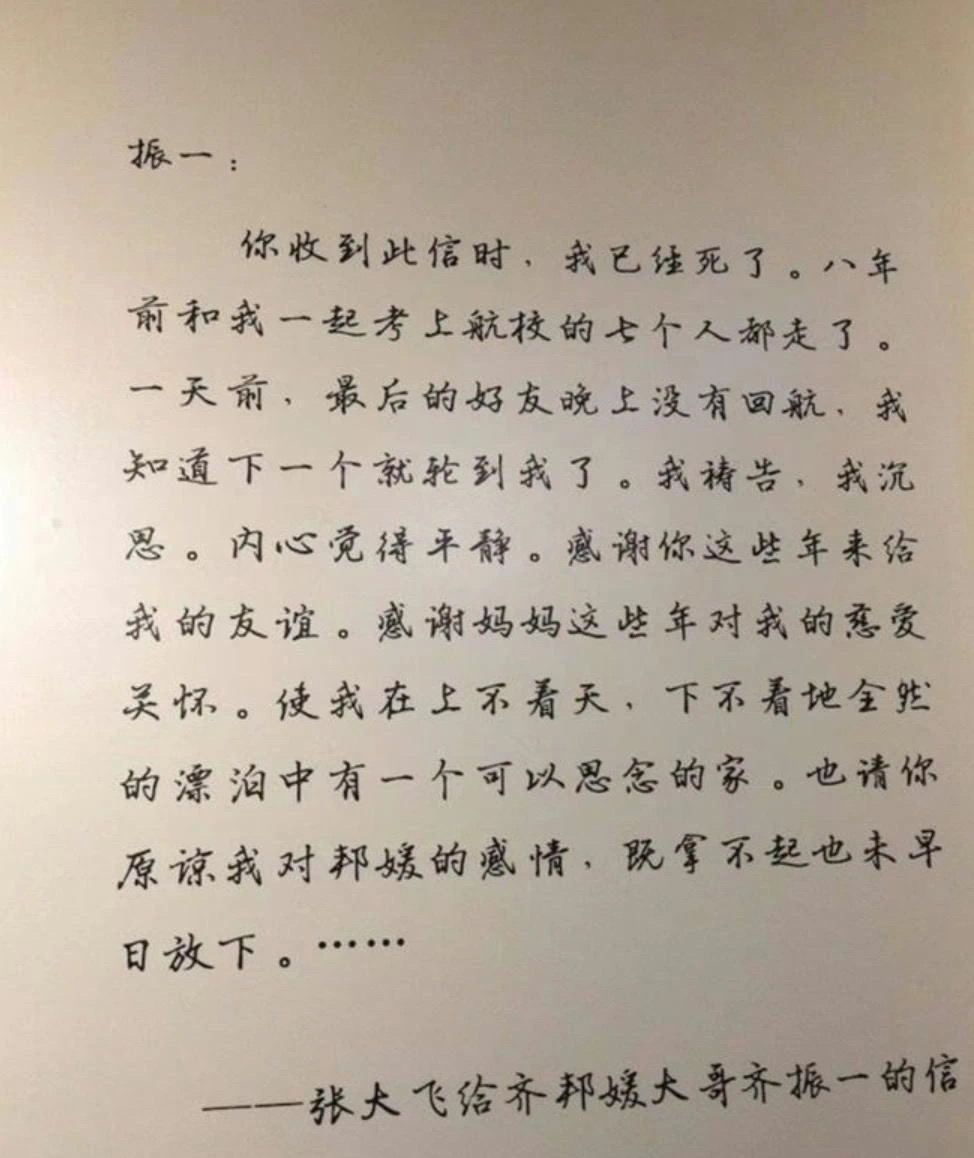 振一：
你收到此信时，我已经死了。八年
前和我一起考上航校的七个人都走了。
一天前，最后的好友晚上没有回航，我
知道下一个就轮到我了。我祷告，我沉
思。内心觉得平静。感谢你这些年来给
我的友谊。感谢妈妈这些年对我的慈爱
关怀。使我在上不着天，下不着地全然
的漂泊中有一个可以思念的家。也请你
原谅我对邦媛的感情，既拿不起也未早
日放下。……
——张大飞给齐邦媛大哥齐振一的信